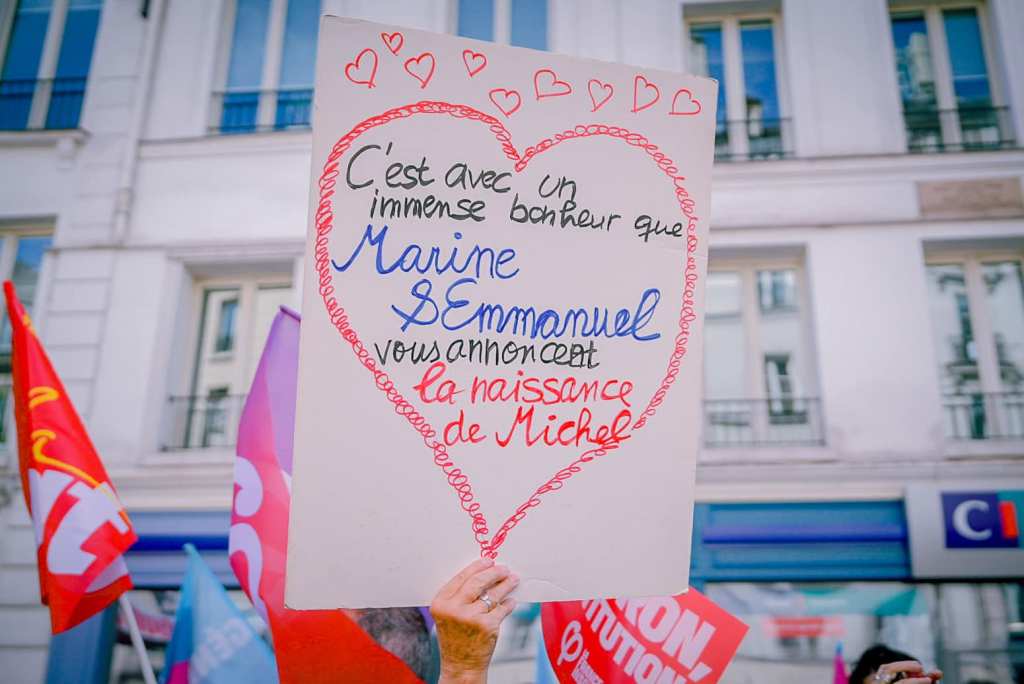 C'est avec un
immense bonheur que
Marine
& Emmanuel
vous annoncent
la naissance
de Michel
RON,
TUTION